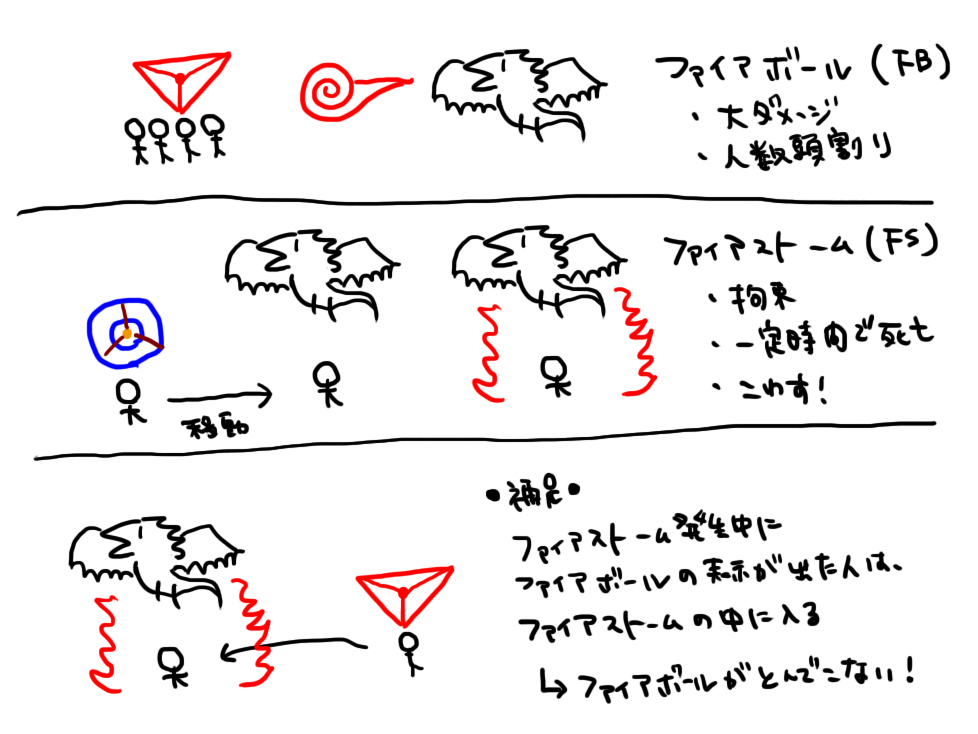 ファイアボール(FB)
・大ダメージ
・人数頭割り
ファイアストーム(FS)
・拘束
・一定時間で死亡
・こわす!
移動
•補足•
ファイアストーム発生中に
ファイアボールの表示が出た人は、
ファイアストームの中に入る
↳ファイアボールがとんでこない!